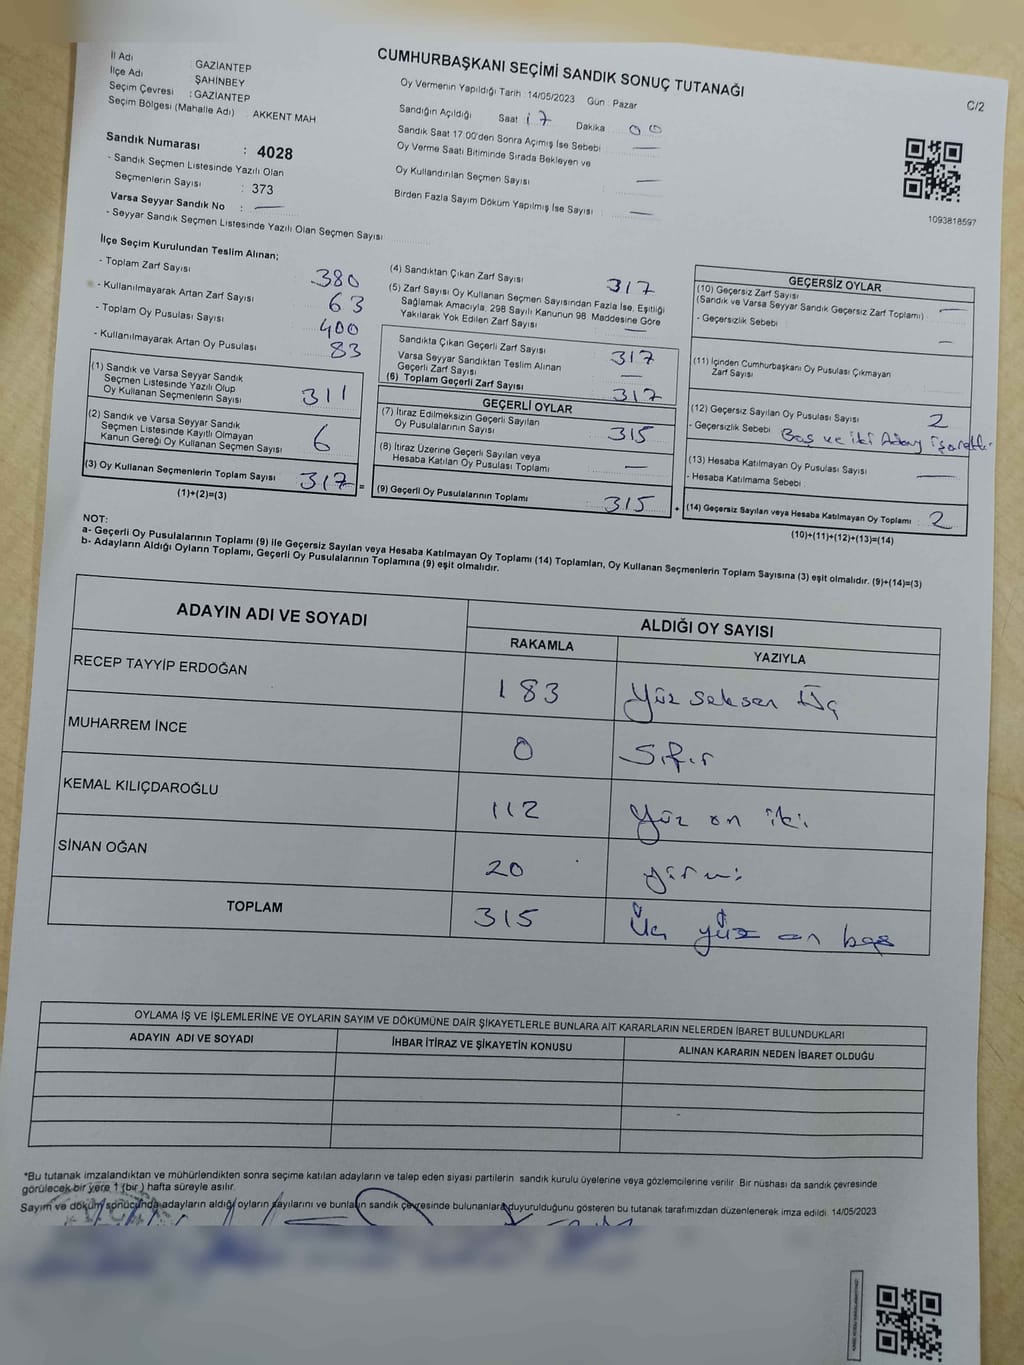 CUMHURBAŞKANI SEÇİMİ SANDIK SONUÇ TUTANAĞI
C/2
İl Adı : GAZİANTEP
İlçe Adı : ŞAHİNBEY
Seçim Çevresi : GAZİANTEP
Seçim Bölgesi (Mahalle Adı) : AKKENT MAH
Sandık Numarası : 4028
- Sandık Seçmen Listesinde Yazılı Olan
Seçmenlerin Sayısı : 373
Varsa Seyyar Sandık No : —
- Seyyar Sandık Seçmen Listesinde Yazılı Olan Seçmen Sayısı
Oy Vermenin Yapıldığı Tarih : 14/05/2023 Gün : Pazar
Sandığın Açıldığı Saat 17 Dakika 00
Sandık Saat 17 00'den Sonra Açımış İse Sebebi —
Oy Verme Saati Bitiminde Sırada Bekleyen ve
Oy Kullandırılan Seçmen Sayısı : —
Birden Fazla Sayım Döküm Yapılmış İse Sayısı : —
1093818597
İlçe Seçim Kurulundan Teslim Alınan;
- Toplam Zarf Sayısı 380
- Kullanılmayarak Artan Zarf Sayısı 63
- Toplam Oy Pusulası Sayısı 400
- Kullanılmayarak Artan Oy Pusulası 83
(1) Sandık ve Varsa Seyyar Sandık
Seçmen Listesinde Yazılı Olup
Oy Kullanan Seçmenlerin Sayısı 311
(2) Sandık ve Varsa Seyyar Sandık
Seçmen Listesinde Kayıtlı Olmayan
Kanun Gereği Oy Kullanan Seçmen Sayısı 6
(3) Oy Kullanan Seçmenlerin Toplam Sayısı 317 =
(1)+(2)=(3)
(4) Sandıktan Çıkan Zarf Sayısı 317
(5) Zarf Sayısı Oy Kullanan Seçmen Sayısından Fazla İse, Eşitliği
Sağlamak Amacıyla, 298 Sayılı Kanunun 98 Maddesine Göre
Yakılarak Yok Edilen Zarf Sayısı —
Sandıkta Çıkan Geçerli Zarf Sayısı 317
Varsa Seyyar Sandıktan Teslim Alınan
Geçerli Zarf Sayısı —
(6) Toplam Geçerli Zarf Sayısı 317
GEÇERLİ OYLAR
(7) İtiraz Edilmeksizin Geçerli Sayılan
Oy Pusulalarının Sayısı 315
(8) İtiraz Üzerine Geçerli Sayılan veya
Hesaba Katılan Oy Pusulası Toplamı —
(9) Geçerli Oy Pusulalarının Toplamı 315 +
GEÇERSİZ OYLAR
(10) Geçersiz Zarf Sayısı
(Sandık ve Varsa Seyyar Sandık Geçersiz Zarf Toplamı) —
- Geçersizlik Sebebi : —
(11) İçinden Cumhurbaşkanı Oy Pusulası Çıkmayan
Zarf Sayısı
(12) Geçersiz Sayılan Oy Pusulası Sayısı 2
- Geçersizlik Sebebi Boş ve iki Aday
(13) Hesaba Katılmayan Oy Pusulası Sayısı —
- Hesaba Katılmama Sebebi :
(14) Geçersiz Sayılan veya Hesaba Katılmayan Oy Toplamı 2
(10)+(11)+(12)+(13)=(14)
NOT:
a- Geçerli Oy Pusulalarının Toplamı (9) ile Geçersiz Sayılan veya Hesaba Katılmayan Oy Toplamı (14) Toplamları, Oy Kullanan Seçmenlerin Toplam Sayısına (3) eşit olmalıdır. (9)+(14)=(3)
b- Adayların Aldığı Oyların Toplamı, Geçerli Oy Pusulalarının Toplamına (9) eşit olmalıdır.
ADAYIN ADI VE SOYADI ALDIĞI OY SAYISI
RAKAMLA YAZIYLA
RECEP TAYYİP ERDOĞAN 183 Yüz seksen Üç
MUHARREM İNCE 0 Sıfır
KEMAL KILIÇDAROĞLU 112 Yüz on iki
SİNAN OĞAN 20 yirmi
TOPLAM 315 Üç yüz on beş
OYLAMA İŞ VE İŞLEMLERİNE VE OYLARIN SAYIM VE DÖKÜMÜNE DAİR ŞİKAYETLERLE BUNLARA AİT KARARLARIN NELERDEN İBARET BULUNDUKLARI
ADAYIN ADI VE SOYADI İHBAR İTİRAZ VE ŞİKAYETİN KONUSU ALINAN KARARIN NEDEN İBARET OLDUĞU
*Bu tutanak imzalandıktan ve mühürlendikten sonra seçime katılan adayların ve talep eden siyasi partilerin sandık kurulu üyelerine veya gözlemcilerine verilir Bir nüshası da sandık çevresinde
görülecek bir yere 1 (bir ) hafta süreyle asılır.
Sayım ve döküm sonucunda adayların aldığı oyların sayılarını ve bunların sandık çevresinde bulunanlara duyurulduğunu gösteren bu tutanak tarafımızdan düzenlenerek imza edildi. 14/05/2023